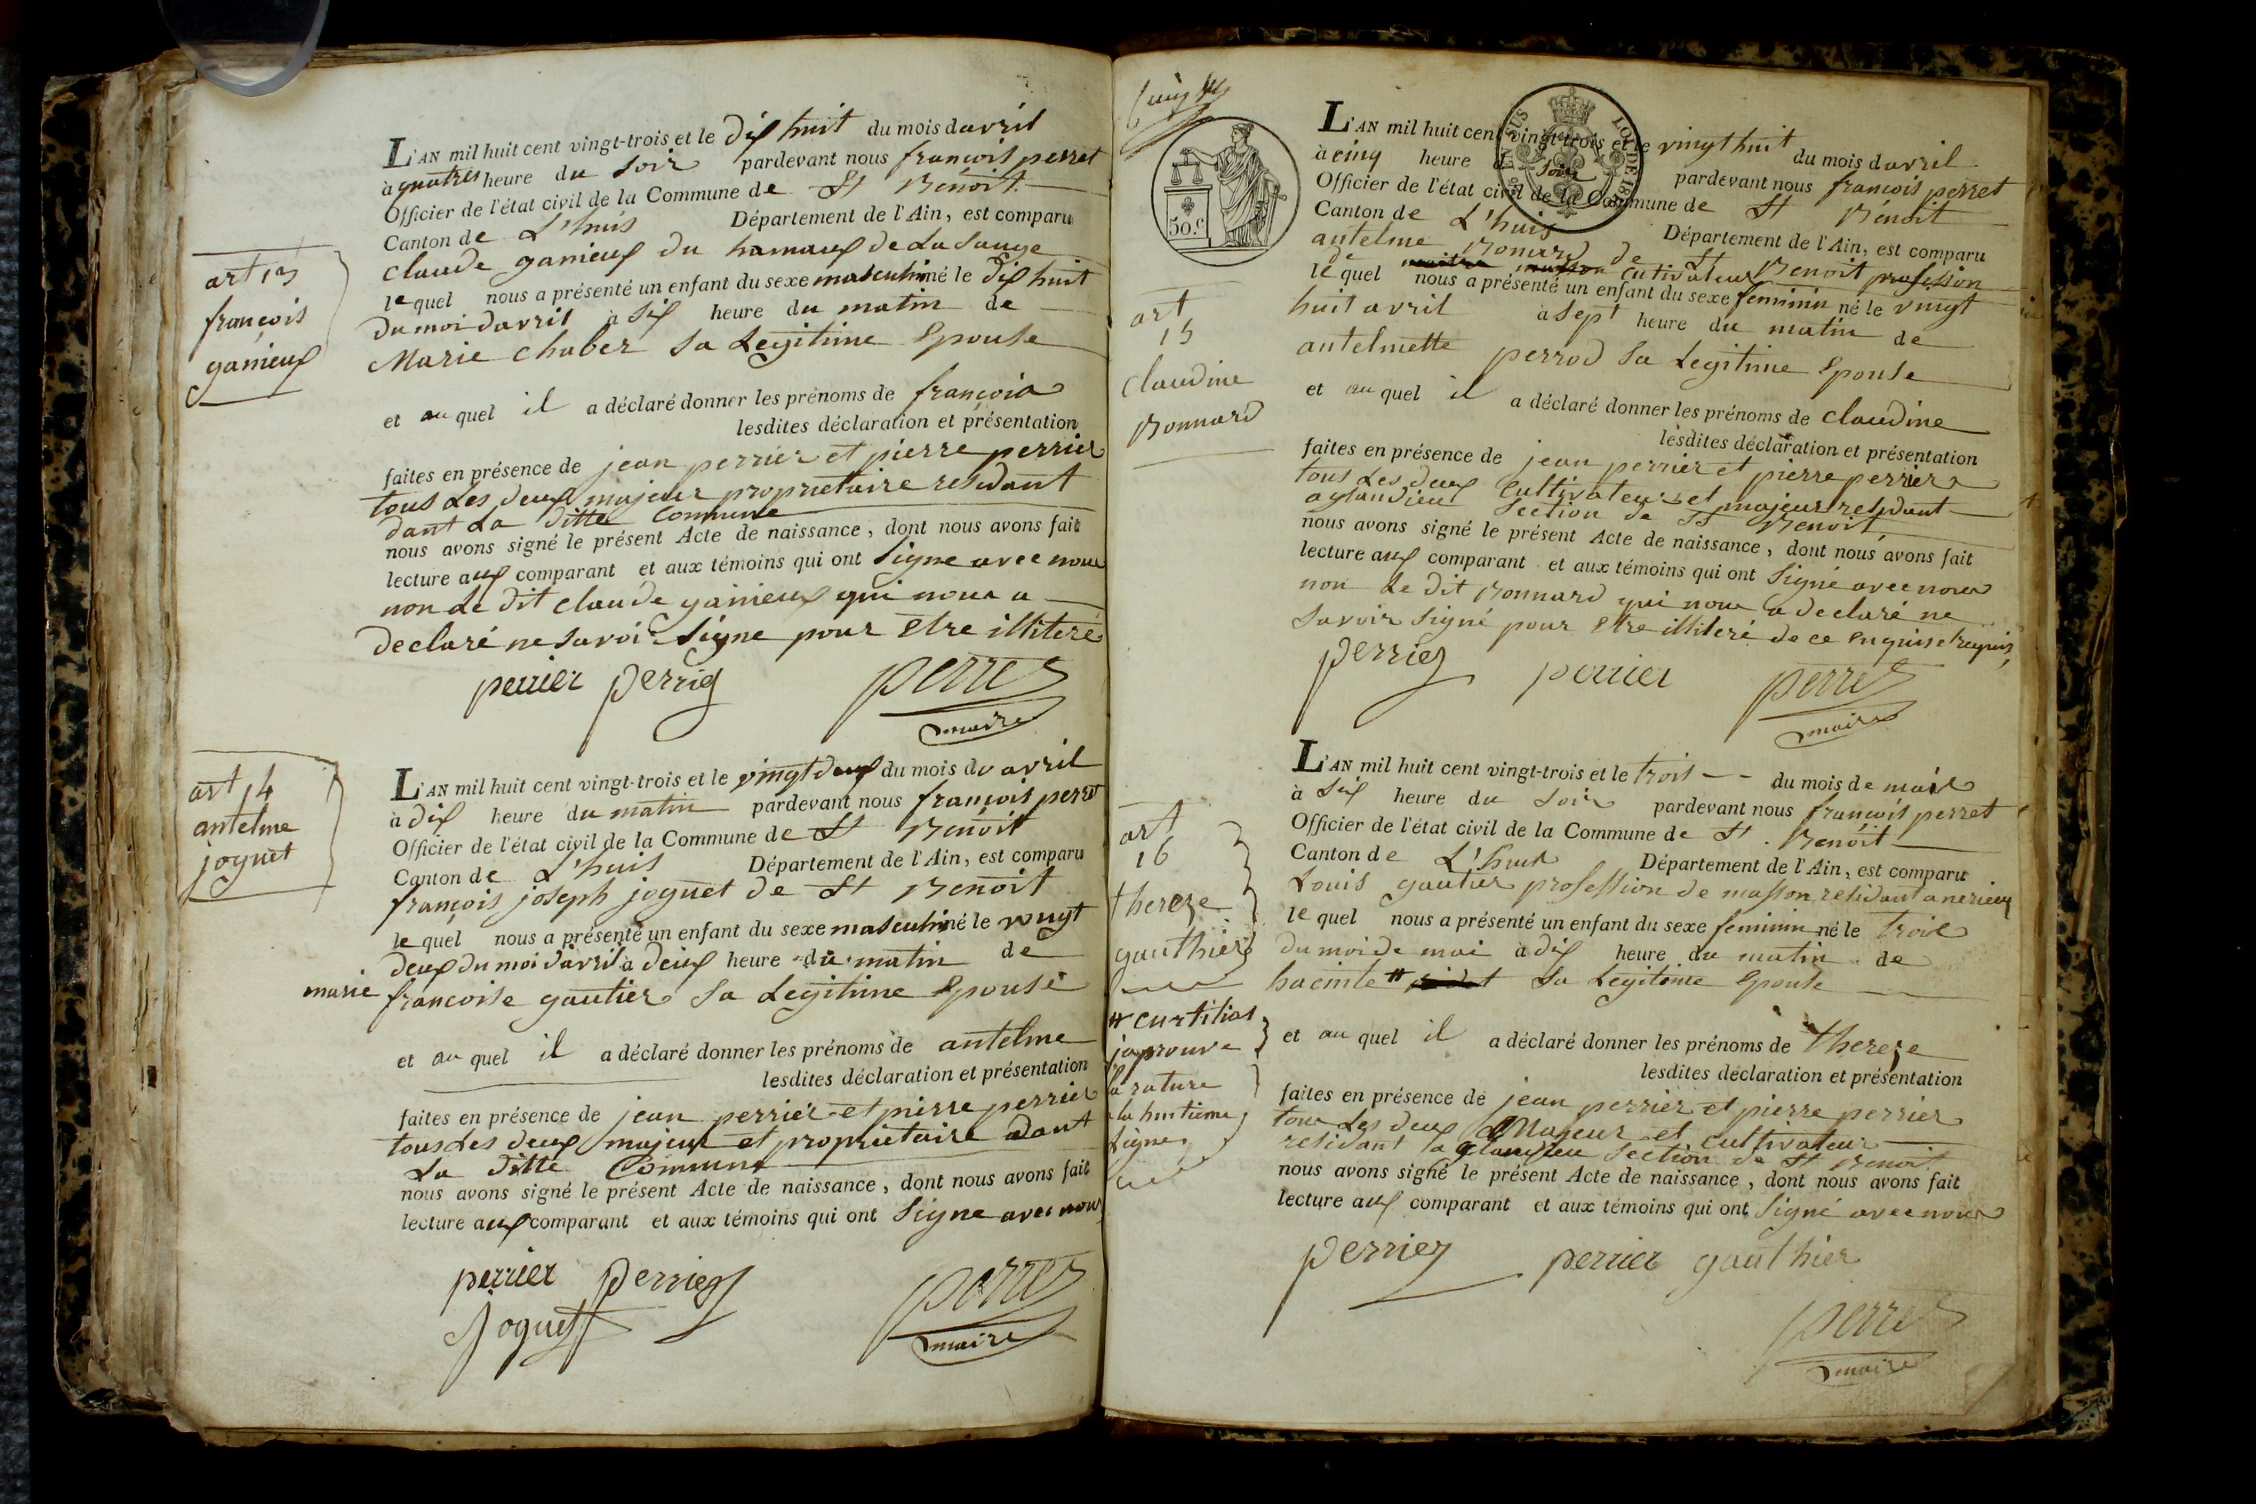 art 13
françois
ganieux
L'AN mil huit cent vingt-trois et le dix huit du mois d avril
à quatres heure du soir pardevant nous françois perret
Officier de l'état civil de la Commune de St Benoit
Canton de L'huis Département de l'Ain, est comparu
claude ganieux du hamaux de La Sauge
le quel nous a présenté un enfant du sexe masculin né le dix huit
du moi d avril à six heure du matin de
Marie chaber sa Legitime Epouse
et au quel il a déclaré donner les prénoms de françois
lesdites déclaration et présentation
faites en présence de jean perrier et pierre perrier
tous Les deux majeur proprietaire residant
dant La ditte Commune
nous avons signé le présent Acte de naissance, dont nous avons fait
lecture aux comparant et aux témoins qui ont Signe avec nous
non Le dit claude ganieux qui nous a
declaré ne savoir Signe pour Etre illiteré
perrier perrier perret
maire
art 14
antelme
joguet
L'AN mil huit cent vingt-trois et le vingt deux du mois du avril
à dix heure du matin pardevant nous françois perret
Officier de l'état civil de la Commune de St Benoit
Canton de L'huis Département de l'Ain, est comparu
françois joseph joguet de St Benoit
le quel nous a présenté un enfant du sexe masculin né le vingt
deux du moi d'avril à deux heure du matin de
marie françoise gautier sa Legitime Epouse
et au quel il a déclaré donner les prénoms de antelme
lesdites déclaration et présentation
faites en présence de jean perrier et pierre perrier
tous Les deux majeur et proprietaire dant
La ditte Commune
nous avons signé le présent Acte de naissance, dont nous avons fait
lecture aux comparant et aux témoins qui ont Signe avec nous
perrier perrier perret
joguet maire
50 c
EN SUS
LOI DE 18
art
15
claudine
Bonnard
L'AN mil huit cent vingt-trois et le vingt huit du mois d avril
à cinq heure du soir pardevant nous françois perret
Officier de l'état civil de la Commune de St Benoit
Canton de L'huis Département de l'Ain, est comparu
antelme Bonard de St Benoit profession
de cutivateur
le quel nous a présenté un enfant du sexe feminin né le vingt
huit avril à sept heure du matin de
antelmette perrod sa Legitime Epouse
et au quel il a déclaré donner les prénoms de claudine
lesdites déclaration et présentation
faites en présence de jean perrier et pierre perrier
tous Les deux cultivateur et majeur residant
a glandieu Section de St Benoit
nous avons signé le présent Acte de naissance, dont nous avons fait
lecture aux comparant et aux témoins qui ont Signé avec nous
non Le dit Bonnard qui nous a declaré ne
savoir signé pour Etre illiteré de ce enquis et requis
perrier perrier perret
maire
art
16
thereze
gauthier
# curtiliat
japrouve
la rature
a la huitieme
Ligne
L'AN mil huit cent vingt-trois et le trois du mois de mai
à six heure du soir pardevant nous françois perret
Officier de l'état civil de la Commune de St Benoit
Canton de L'huis Département de l'Ain, est comparu
Louis gautier profession de masson residant a nerieux
le quel nous a présenté un enfant du sexe feminin né le trois
du moi de mai à dix heure du matin de
hacinte # sa Legitime Epouse
et au quel il a déclaré donner les prénoms de thereze
lesdites déclaration et présentation
faites en présence de jean perrier et pierre perrier
tous Les deux Majeur et cultivateur
residant a glandieu Section de St Benoit
nous avons signé le présent Acte de naissance, dont nous avons fait
lecture aux comparant et aux témoins qui ont Signé avec nous
perrier perrier gauthier
perret
maire